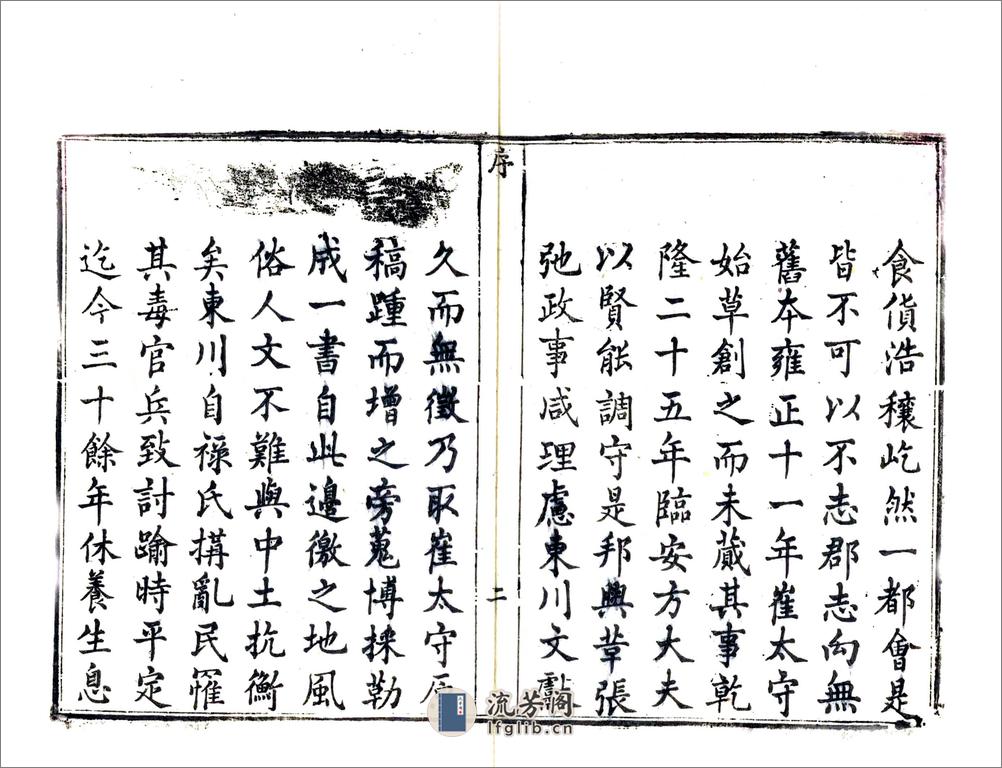 食貨浩穰屹然一都會是
皆不可以不志郡志向無
舊本雍正十一年崔太守
始草創之而未蕆其事乾
隆二十五年臨安方大夫
以賢能調守是邦興革張
弛政事咸理慮東川文獻
序
二
久而無徵乃取崔太守
稿踵而增之旁蒐博採勒
成一書自此邊徼之地風
俗人文不難與中土抗衡
矣東川自祿氏搆亂民罹
其毒官兵致討踰時平定
迄今三十餘年休養生息
流芳閣
lfglib.cn